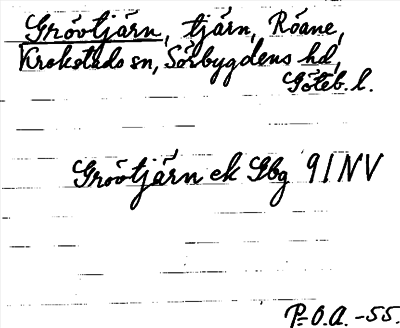 Gröötjärn, tjärn, Röane,
Krokstads sn, Sörbygdens hd,
Göteb. l.
Gröötjärn ek Gbg 91 NV
P-O.A. -55.